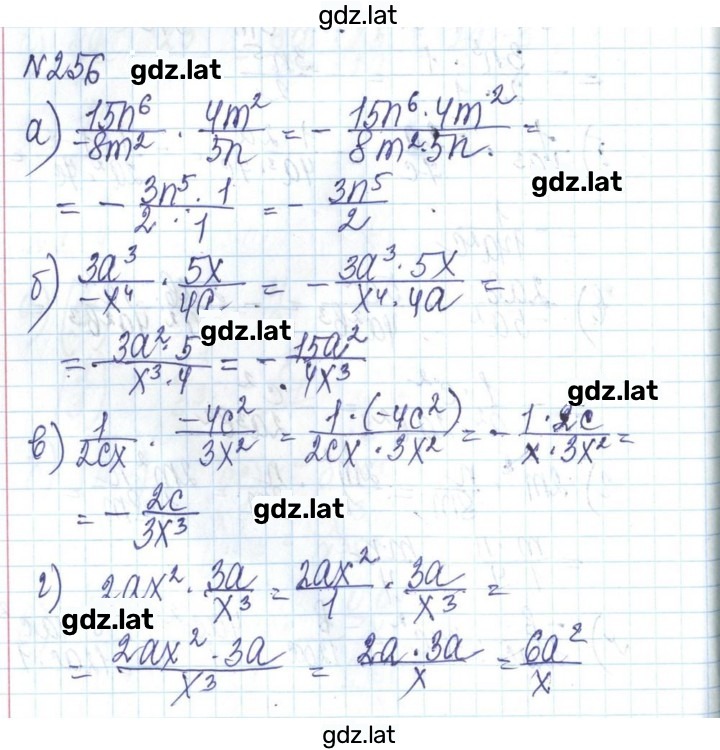 gdz.lat
N256 gdz.lat
а) 15n⁶/-8m² · 4m²/5n = - 15n⁶·4m²/8m²·5n =
gdz.lat
= - 3n⁵·1/2·1 = - 3n⁵/2
б) 3a³/-x⁴ · 5x/4a = - 3a³·5x/x⁴·4a =
gdz.lat
= - 3a²·5/x³·4 = - 15a²/4x³
gdz.lat
в) 1/2cx · -4c²/3x² = 1·(-4c²)/2cx·3x² = - 1·2c/x·3x² =
= - 2c/3x³ gdz.lat
г) 2ax² · 3a/x³ = 2ax²/1 · 3a/x³ =
gdz.lat
= 2ax²·3a/x³ = 2a·3a/x = 6a²/x
gdz.lat